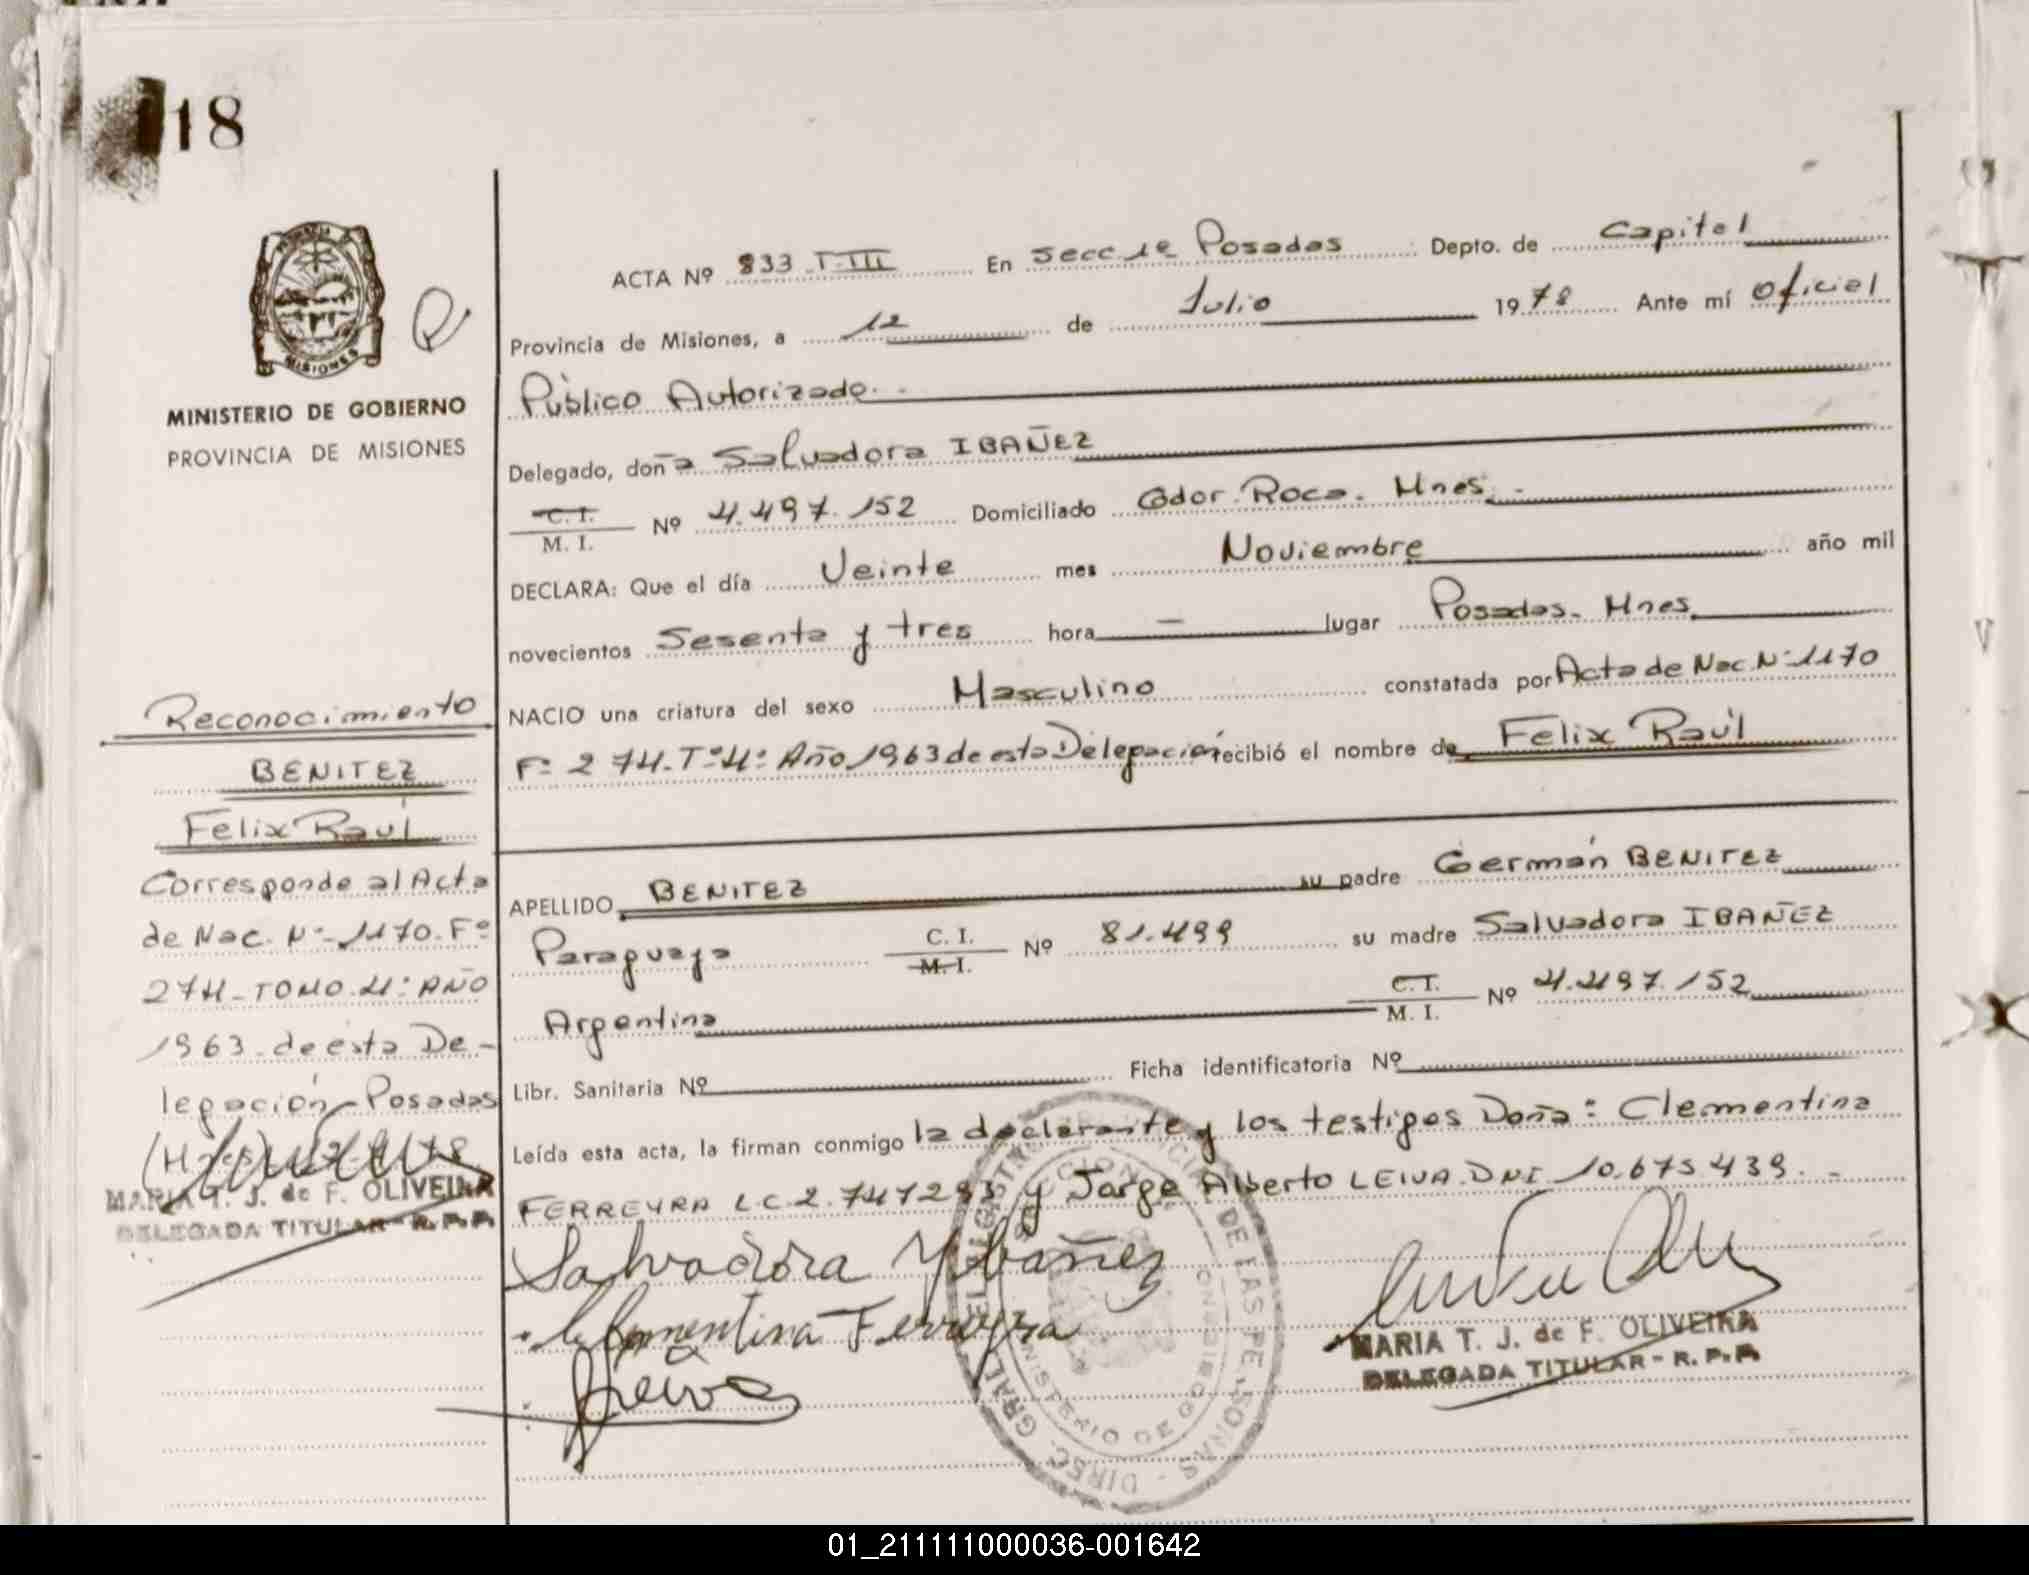 118
MISIONES
MINISTERIO DE GOBIERNO
PROVINCIA DE MISIONES
Reconocimiento
BENITEZ
Felix Raúl
Corresponde al Acta
de Nac. Nº 1170. Fº
274 - TOMO. 4º AÑO
1963 - de esta De-
legación - Posadas
MARIA T. J. de F. OLIVEIRA
DELEGADA TITULAR - R. P. P.
ACTA Nº 833 T-III En Secc 1e Posadas Depto. de Capital
Provincia de Misiones, a 12 de Julio 1978 Ante mí Oficial
Público Autorizado.
Delegado, doña Salvadora IBAÑEZ
C. I.
M. I. Nº 4.497.152 Domiciliado Gdor. Roca. Mnes.
DECLARA: Que el día Veinte mes Noviembre año mil
novecientos Sesenta y tres hora — lugar Posadas. Mnes.
NACIO una criatura del sexo Masculino constatada por Acta de Nac. Nº 1170
Fº 274. Tº 4º Año 1963 de esta Delegación recibió el nombre de Felix Raúl
APELLIDO BENITEZ su padre Germán BENITEZ
Paraguaya C. I. Nº 81.499 su madre Salvadora IBAÑEZ
M. I.
Argentina C. I. Nº 4.497.152
M. I.
Libr. Sanitaria Nº Ficha identificatoria Nº
Leída esta acta, la firman conmigo la declarante y los testigos Doña: Clementina
FERREYRA L.C. 2.747293 y Jorge Alberto LEIVA. DNI 10.675439. -
Salvadora Ybañez
Clementina Ferreyra
Leiva
MARIA T. J. de F. OLIVEIRA
DELEGADA TITULAR - R. P. P.
MINISTERIO DE GOBIERNO
01_211111000036-001642